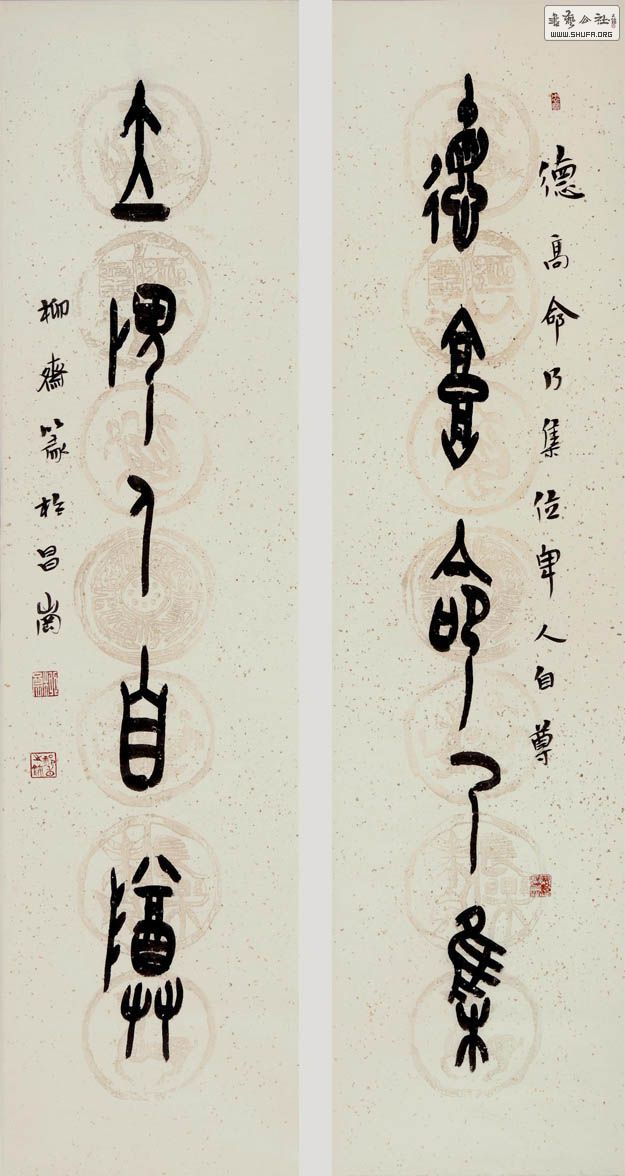 書藝公社
WWW.SHUFA.ORG
德高命乃集位卑人自尊
德高命乃集
位卑人自尊
柳齋篆於昌崗